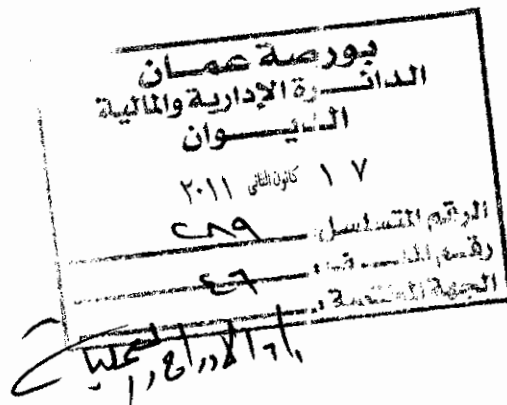 بورصة عمان
الدائرة الإدارية والمالية
الديوان
١٧ كانون الثاني ٢٠١١
الرقم المتسلسل: ٢٨٩
رقم الملف: ٤٦
الجهة المختصة: